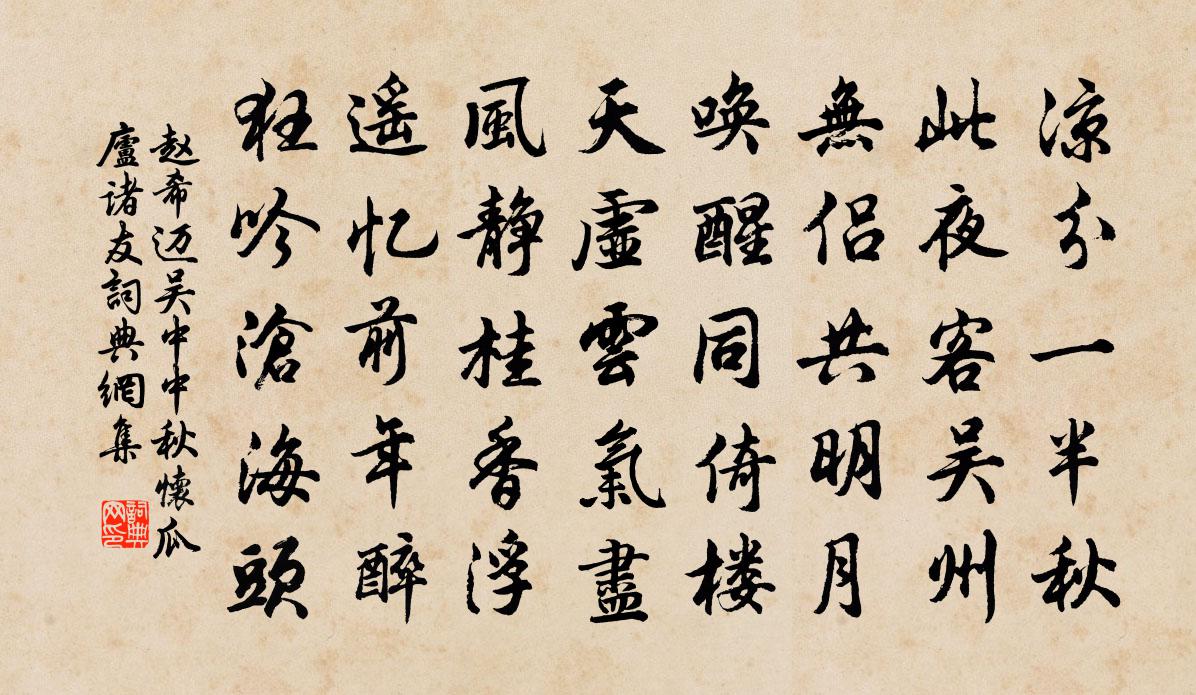 涼分一半秋
此夜客吴州
無侶共明月
唤醒同倚楼
天虛雲氣盡
風静桂香浮
遥忆前年醉
狂吟滄海頭
赵希迈吴中中秋懷瓜
廬诸友詞典網集
詞典网印